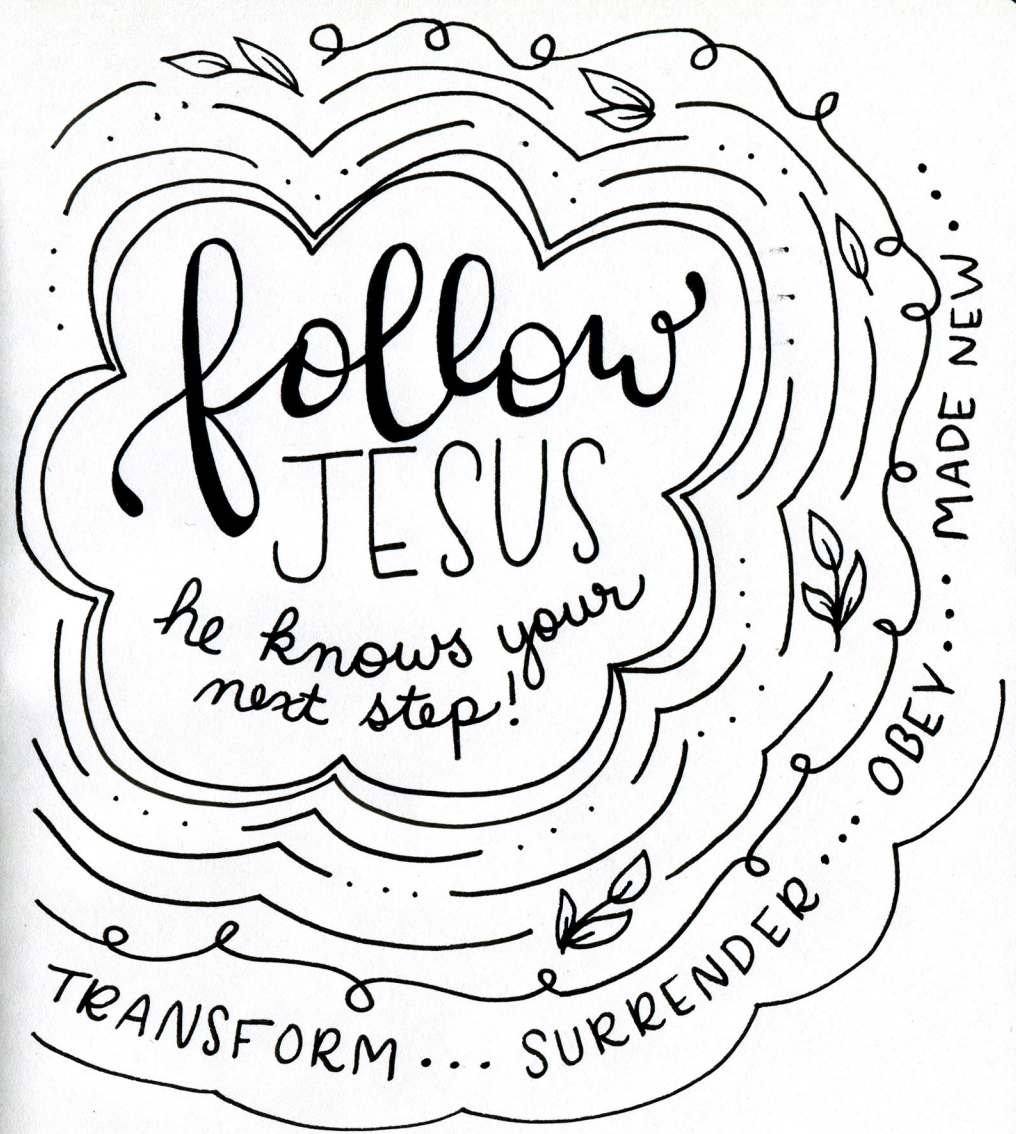 follow
JESUS
he knows your
next step!
TRANSFORM... SURRENDER... OBEY... MADE NEW...